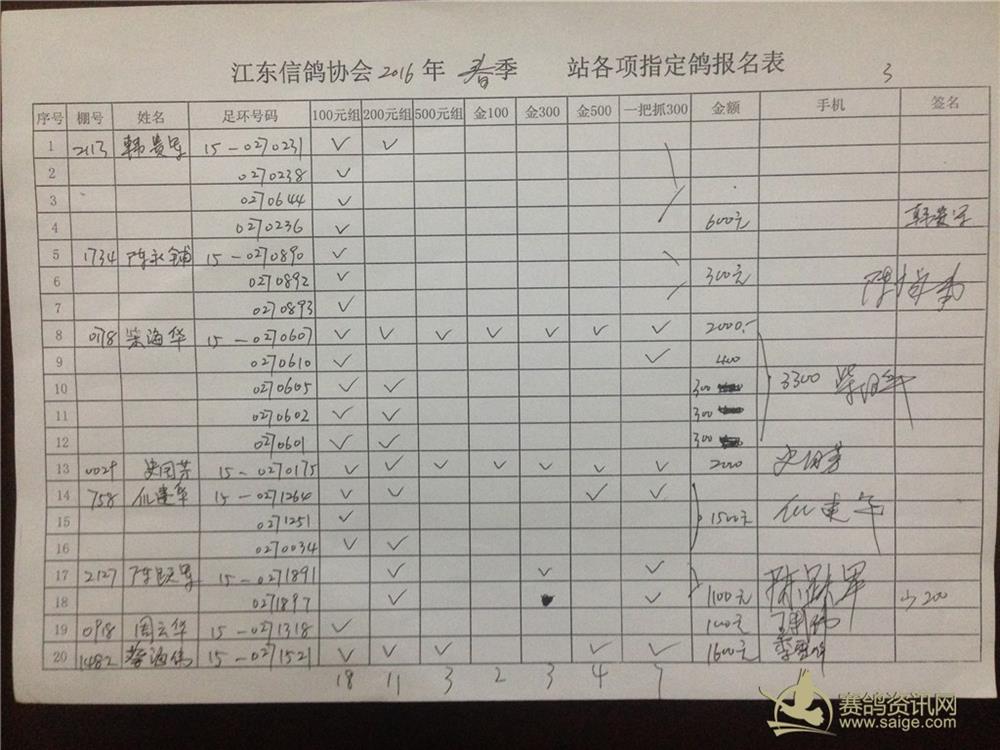 江东信鸽协会 2016 年 春季 站各项指定鸽报名表 3
序号 棚号 姓名 足环号码 100元组 200元组 500元组 金100 金300 金500 一把抓300 金额 手机 签名
1 2113 韩贵军 15-0270231 ✓ ✓
2 0270238 ✓
3 0270644 ✓
4 0270236 ✓ 600元 韩贵军
5 1734 陈永铺 15-0270890 ✓
6 0270892 ✓ 300元
7 0270893 ✓
8 0178 柴海华 15-0270607 ✓ ✓ ✓ ✓ ✓ ✓ ✓ 2000.-
9 0270610 ✓ ✓ 400
10 0270605 ✓ ✓ 300 3300
11 0270602 ✓ ✓ 300
12 0270601 ✓ ✓ 300
13 0029 史国芳 15-0270175 ✓ ✓ ✓ ✓ ✓ ✓ ✓ 2000 史国芳
14 758 仇建华 15-0271264 ✓ ✓ ✓ ✓
15 0271251 ✓ 1500元 仇建华
16 0270034 ✓ ✓
17 2127 陈跃军 15-0271891 ✓ ✓ ✓
18 0271897 ✓ ✓ 1100元 陈跃军 200
19 0918 周云华 15-0271318 ✓ 100元
20 1482 蔡海伟 15-0271521 ✓ ✓ ✓ ✓ ✓ 1600元
18 11 3 2 3 4 7
赛鸽资讯网
www.saige.com